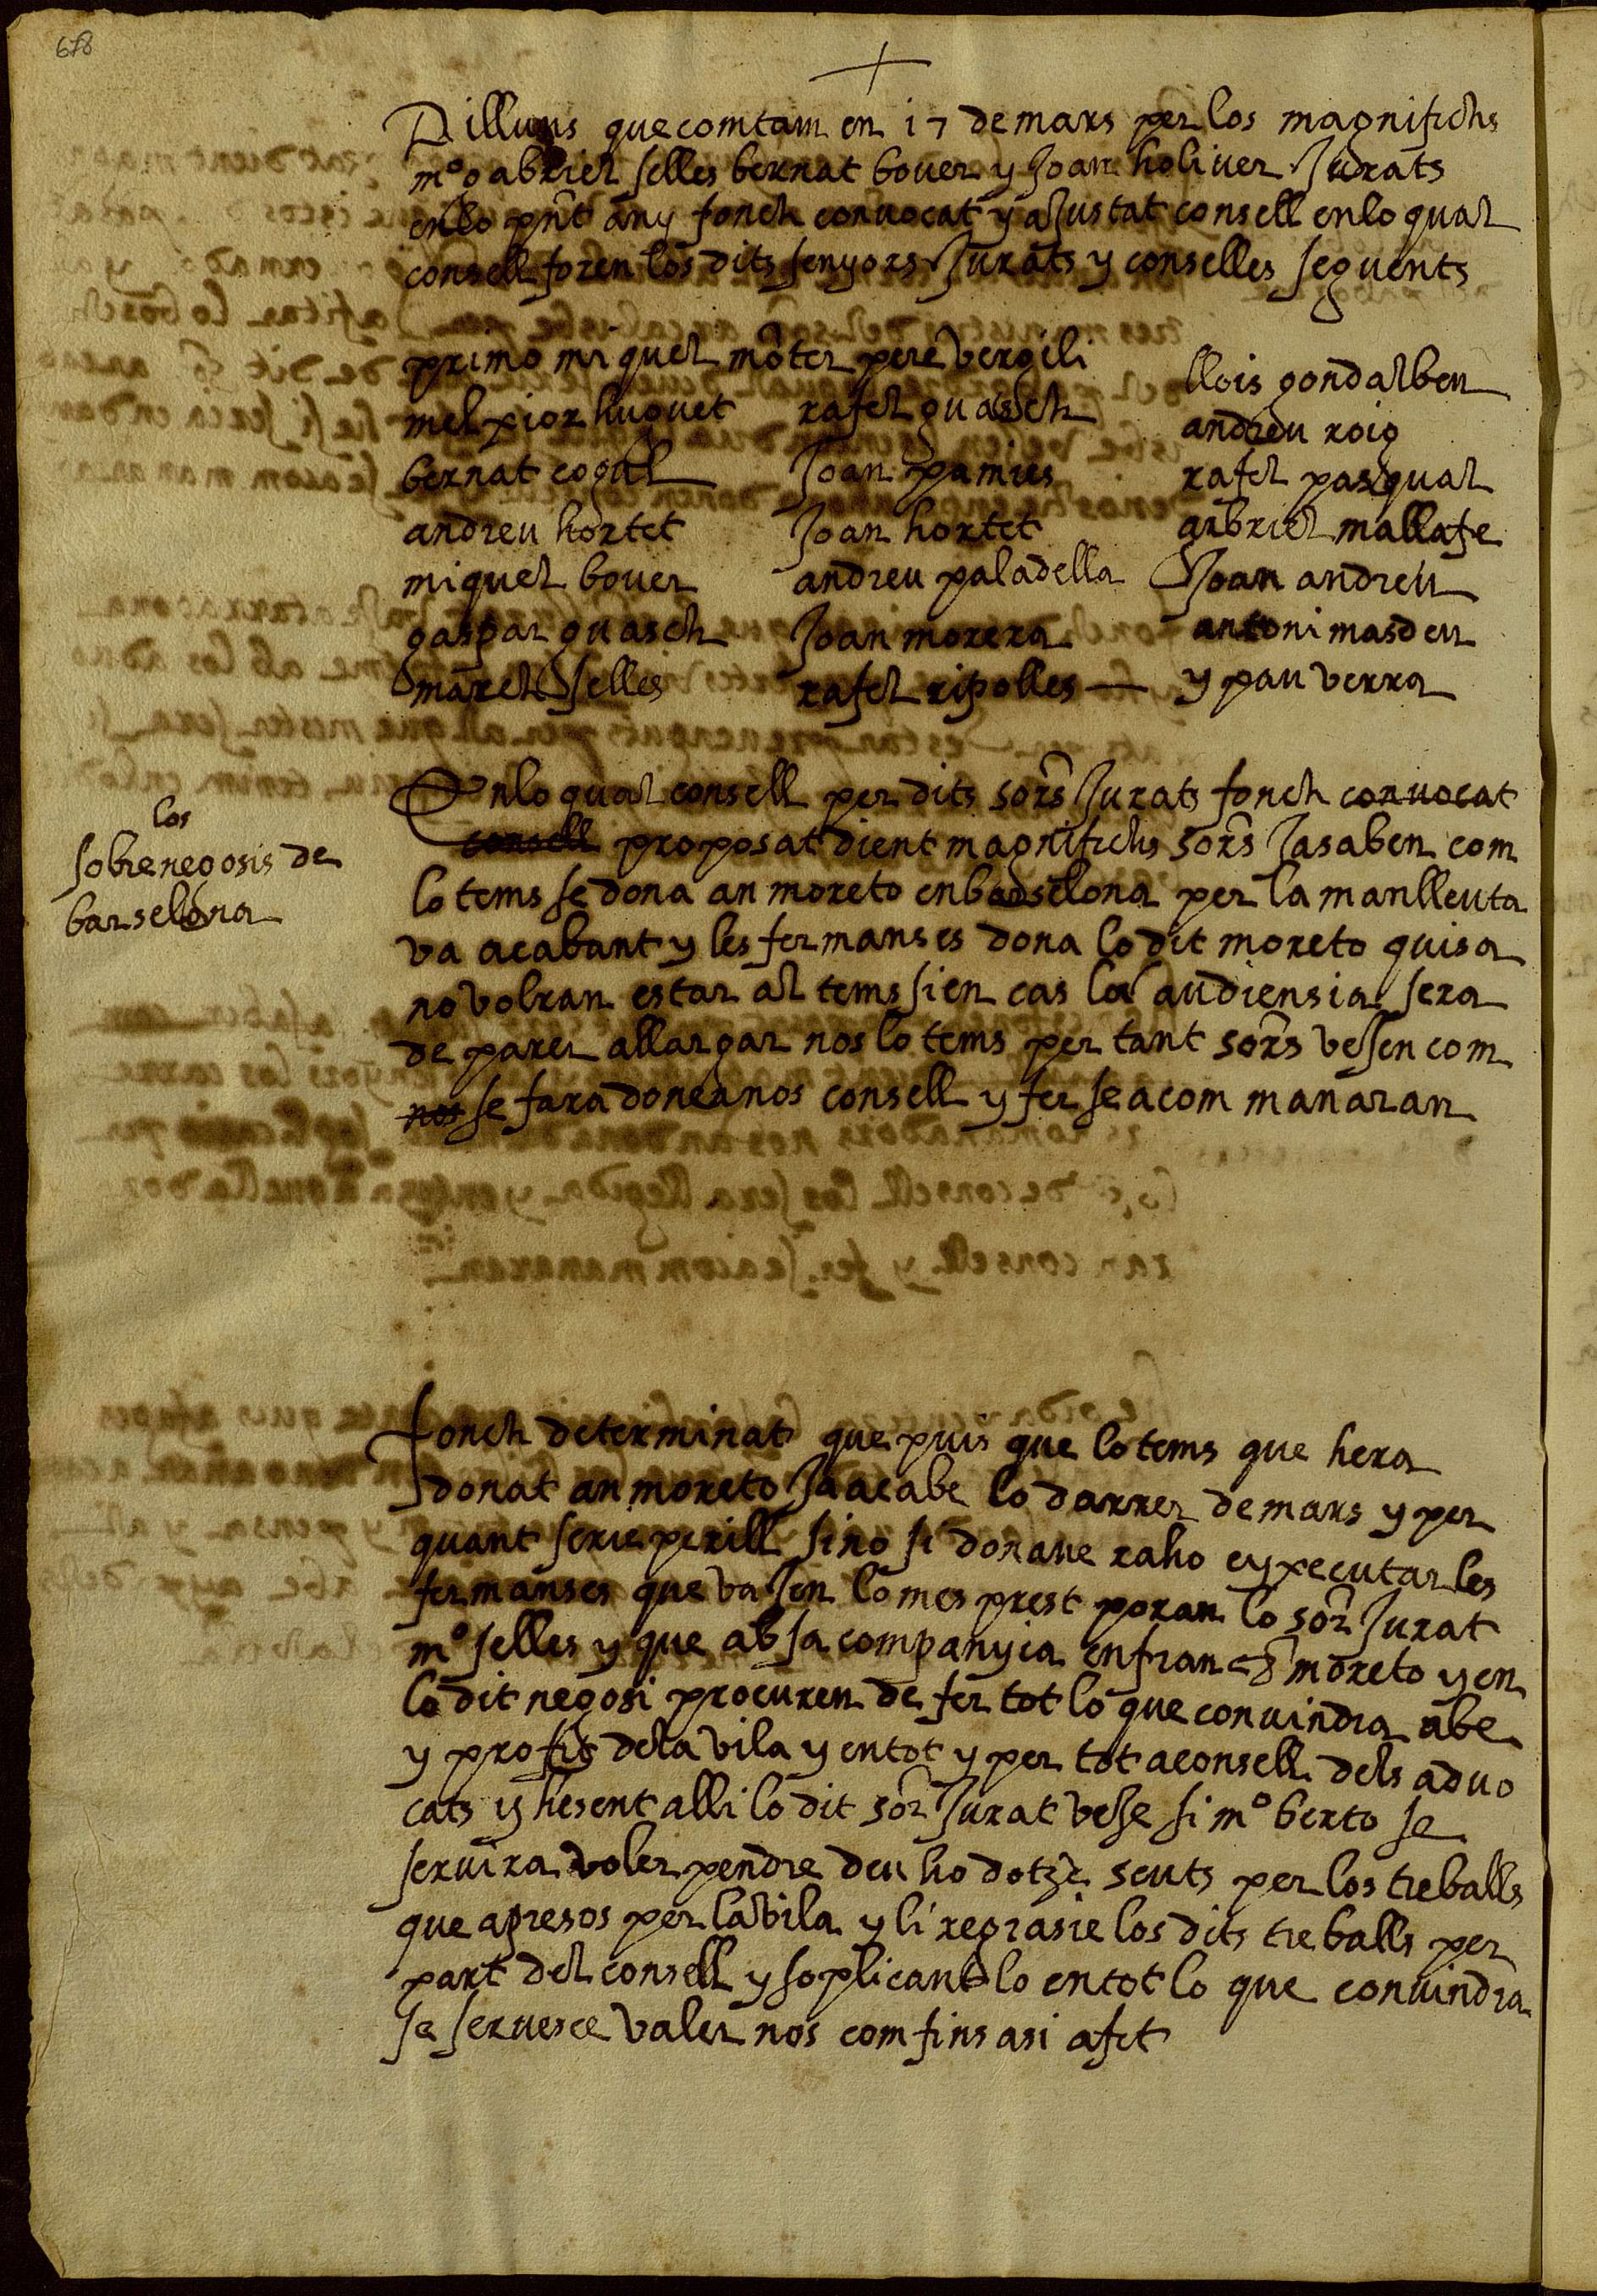 678
Dilluns que comtam en 17 de mars per los magnifichs
mº gabriel selles bernat bover y Joan holiver Jurats
en lo pnt any fonch convocat y aJustat consell en lo qual
consell foren los dits senyors Jurats y conselles seguents
primo miquel moter pere vergili
llois gondalbeu
melxior huguet rafel guasch
andreu roig
bernat cogul Joan pamies rafel pasqual
andreu hortet Joan hortet gabriel mallafe
miquel bover andreu paladella Joan andreu
gaspar guasch Joan morera antoni masdeu
march selles rafel ripolles — y pau verra
los
sobre negosis de
barselona
En lo qual consell per dits sors Jurats fonch convocat
consell proposat dient magnifichs sors Ja saben com
lo tems se dona an moreto en barselona per la manlleuta
va acabant y les fermanses dona lo dit moreto quisa
no volran estar al tems si en cas la audiensia sera
de parer allargar nos lo tems per tant sors veJen com
nos se fara donea nos consell y fer se a com manaran
fonch determinat que puis que lo tems que hera
donat an moreto Ja acabe lo darrer de mars y per
quant serie perill sino si donave raho eyxecutar les
fermanses que vaJen lo mes prest poran lo sor Jurat
mº selles y que ab sa companyia en fran ch moreto y en
lo dit negosi procuren de fer tot lo que convindra abe
y profit dela vila y en tot y per tot a consell dels advo
cats y hesent alli lo dit sor Jurat veJe si mº berto se
servira voler pendre deu ho dotze scuts per los treballs
que a presos per la vila y li regrasie los dits treballs per
part del consell y soplicant lo en tot lo que convindra
se servesce valer nos com fins asi a fet